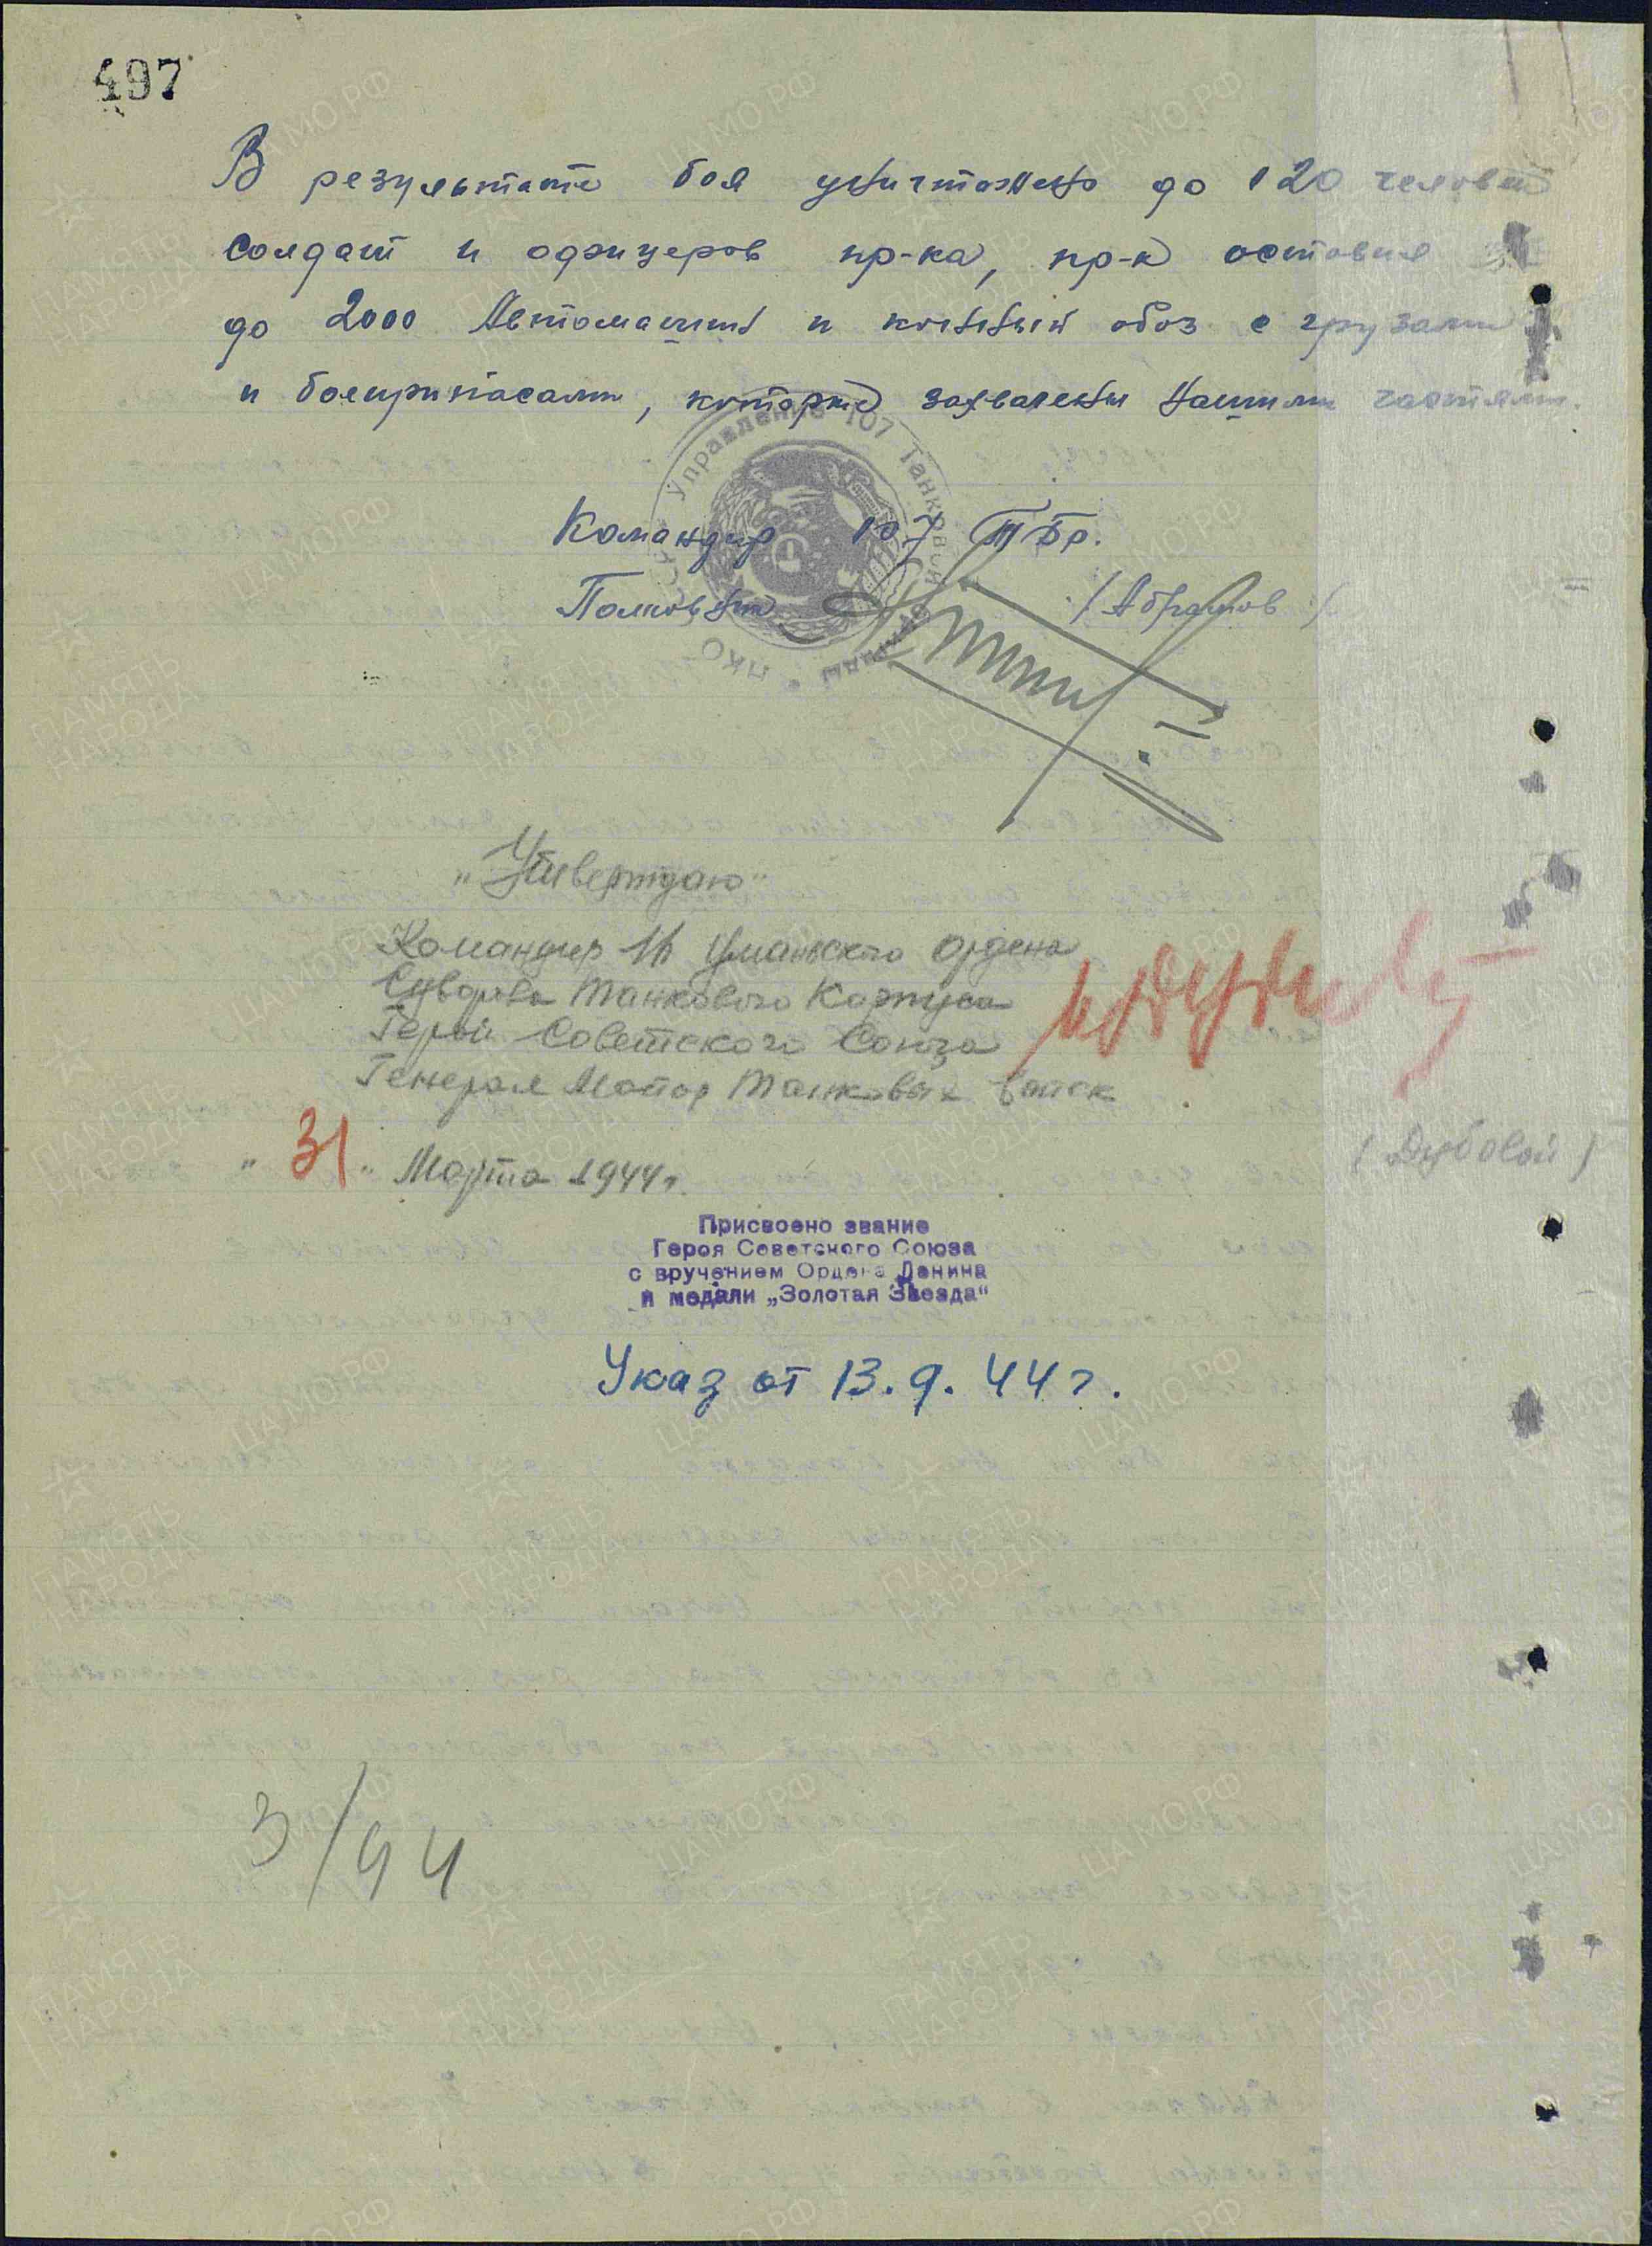 497
В результате боя уничтожено до 120 человек
солдат и офицеров пр-ка, пр-к оставил
до 2000 Автомашин и конный обоз с грузами
и боеприпасами, которые захвачены нашими частями.
Управление 107 Танковой бригады НКО
Командир 107 ТБр.
Полковник /Абрамов/
"Утверждаю"
Командир 16 Уманьского ордена
Суворова Танкового Корпуса
Герой Советского Союза
Генерал Майор Танковых Войск
(Дубовой)
"31" Марта 1944 г.
Присвоено звание
Героя Советского Союза
с вручением Ордена Ленина
и медали „Золотая Звезда"
Указ от 13.9.44 г.
3/44
ПАМЯТЬ НАРОДА
ЦАМО РФ